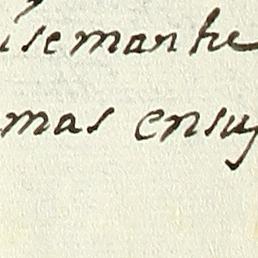 isemanhe
mas ensu